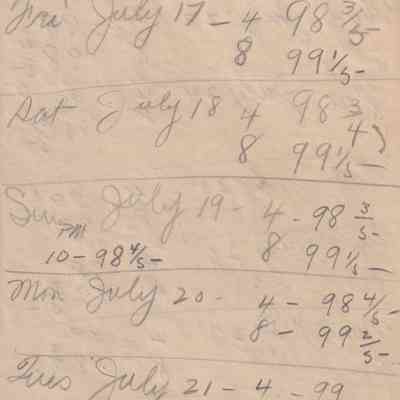 Fri July 17 - 4 98 3/5
8 99 1/5 -
Sat July 18 4 98 3/4
8 99 1/5 -
Sun July 19 - 4 - 98 3/5 -
PM
10 - 98 4/5 - 8 99 1/5 -
Mon July 20 - 4 - 98 4/5 -
8 - 99 2/5 -
Tues July 21 - 4 - 99